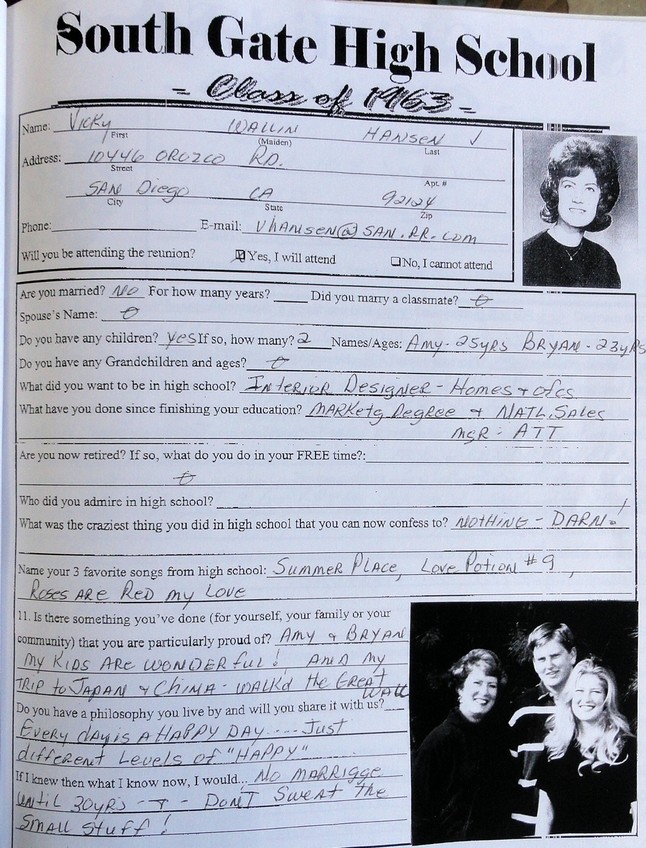 South Gate High School
- Class of 1963 -
Name: Vicky WALLIN HANSEN ✓
First (Maiden) Last
Address: 10446 OROZCO RD.
Street Apt. #
SAN Diego CA 92124
City State Zip
Phone: E-mail: VHANSEN@SAN.RR.COM
Will you be attending the reunion? ☑Yes, I will attend ☐No, I cannot attend
Are you married? NO For how many years? Did you marry a classmate? 0
Spouse's Name: 0
Do you have any children? yes If so, how many? 2 Names/Ages: Amy - 25yrs BRYAN - 23yrs
Do you have any Grandchildren and ages? 0
What did you want to be in high school? INterior Designer - Homes + ofcs
What have you done since finishing your education? MARKetg Degree & NATL Sales
mgR - ATT
Are you now retired? If so, what do you do in your FREE time?:
0
Who did you admire in high school?
What was the craziest thing you did in high school that you can now confess to? NOTHING - DARN!
Name your 3 favorite songs from high school: Summer Place, Love Potion #9,
Roses ARE Red my Love
11. Is there something you've done (for yourself, your family or your
community) that you are particularly proud of? Amy & BRYAN
my KIDS ARE WONDERful! AND my
TRIP to JAPAN & CHINA - WALK'd the GREAT
WALL
Do you have a philosophy you live by and will you share it with us?
Every day is A HAPPY DAY.... Just
different Levels of "HAPPY"
If I knew then what I know now, I would... NO MARRIGGE
until 30yrs - - DON'T Sweat the
Small Stuff!